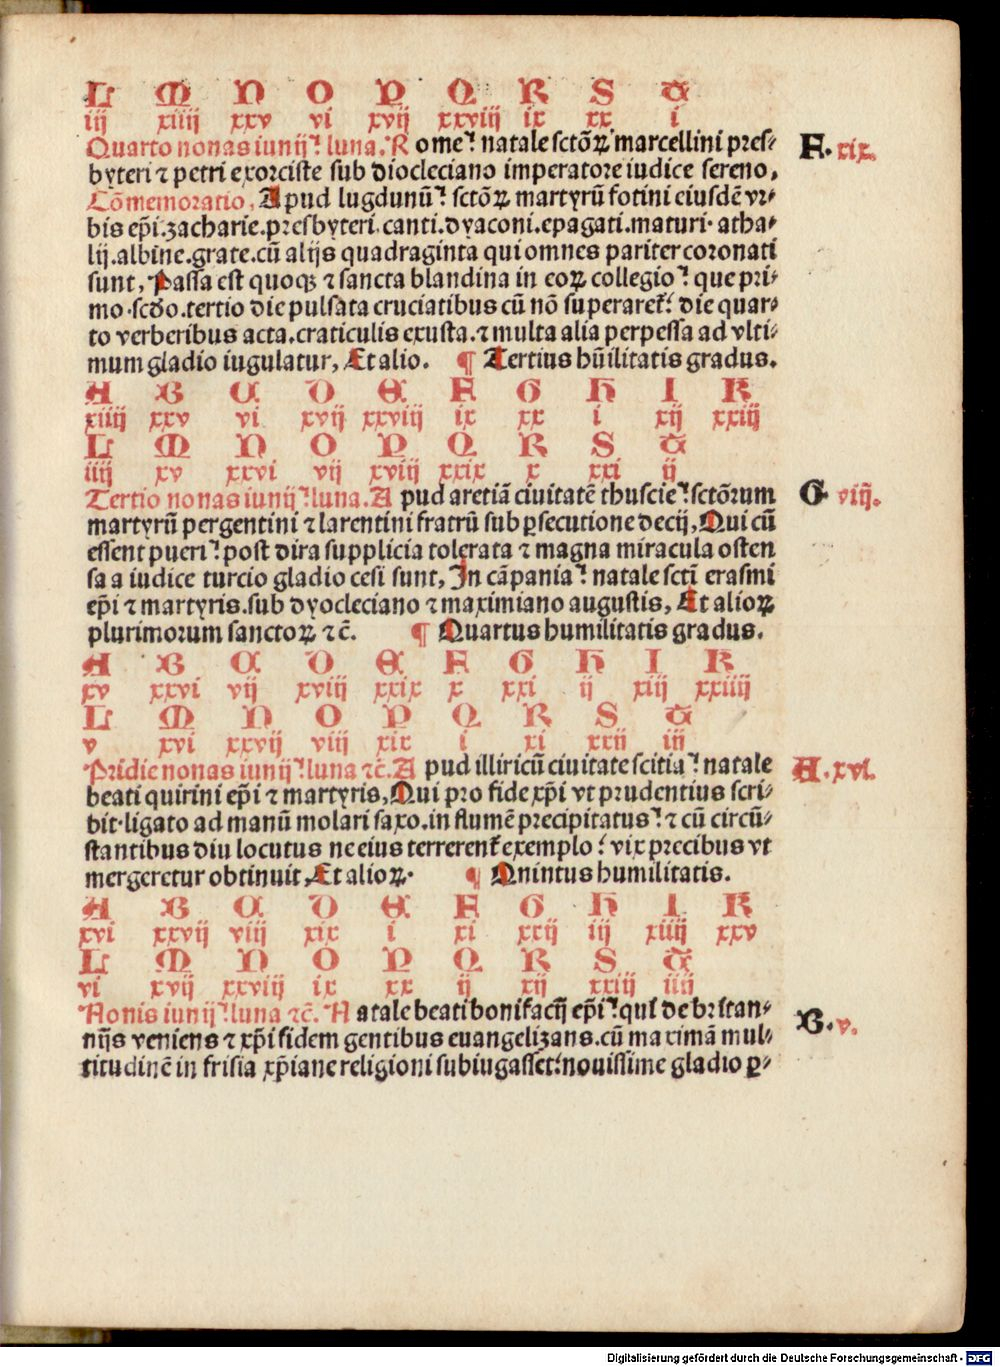 L M N O P Q R S T
iij xiiij xxv vi xvij xxviij ix xx i
Quarto nonas iunij: luna. Rome: natale sctõꝝ marcellini pres- F. xix.
byteri ⁊ petri exorciste sub diocleciano imperatore iudice sereno.
Cõmemoratio. Apud lugdunũ: sctõꝝ martyrũ fotini eiusdẽ vr-
bis ep̃i. zacharie. presbyteri. canti. dyaconi. epagati. maturi. atha-
lij. albine. grate. cũ alijs quadraginta qui omnes pariter coronati
sunt, Passa est quoqꝫ ⁊ sancta blandina in eoꝝ collegio: que pri-
mo. scd̃o. tertio die pulsata cruciatibus cũ nõ superaret̃: die quar-
to verberibus acta. craticulis exusta. ⁊ multa alia perpessa ad vlti-
mum gladio iugulatur, Et alio. ¶ Tertius hũilitatis gradus.
A B C D E F G H I K
xiiij xxv vi xvij xxviij ix xx i xij xxiij
L M N O P Q R S T
iiij xv xxvi vij xviij xxix x xxi ij
Tertio nonas iunij: luna. Apud aretiã ciuitatẽ thuscie: sctõrum G. viij.
martyrũ pergentini ⁊ larentini fratrũ sub ꝑsecutione decij, Qui cũ
essent pueri: post dira supplicia tolerata ⁊ magna miracula osten
sa a iudice turcio gladio cesi sunt, In cãpania: natale scti̇ erasmi
ep̃i ⁊ martyris. sub dyocleciano ⁊ maximiano augustis, Et alioꝝ
plurimorum sanctoꝝ ⁊ c̃. ¶ Quartus humilitatis gradus.
A B C D E F G H I K
xv xxvi vij xviij xxix x xxi ij xiij xxiiij
L M N O P Q R S T
v xvi xxvij viij xix i xi xxij iij
Pridie nonas iunij: luna ⁊c̃. Apud illiricũ ciuitate scitia: natale A. xvi.
beati quirini ep̃i ⁊ martyris, Qui pro fide xp̃i vt prudentius scri-
bit. ligato ad manũ molari saxo. in flumẽ precipitatus: ⁊ cũ circũ-
stantibus diu locutus ne eius terrerent̃ exemplo: vix precibus vt
mergeretur obtinuit, Et alioꝝ. ¶ Quintus humilitatis.
A B C D E F G H I K
xvi xxvij viij xix i xi xxij iij xiiij xxv
L M N O P Q R S T
vi xvij xxviij ix xx ij xij xxiij iiij
Nonis iunij: luna ⁊c̃. Natale beati bonifacij ep̃i: qui de britan- B. v.
nijs veniens ⁊ xp̃i fidem gentibus euangelizans. cũ maximã mul-
titudinẽ in frisia xp̃iane religioni subiugasset: nouissime gladio ꝑ-
Digitalisierung gefördert durch die Deutsche Forschungsgemeinschaft - DFG